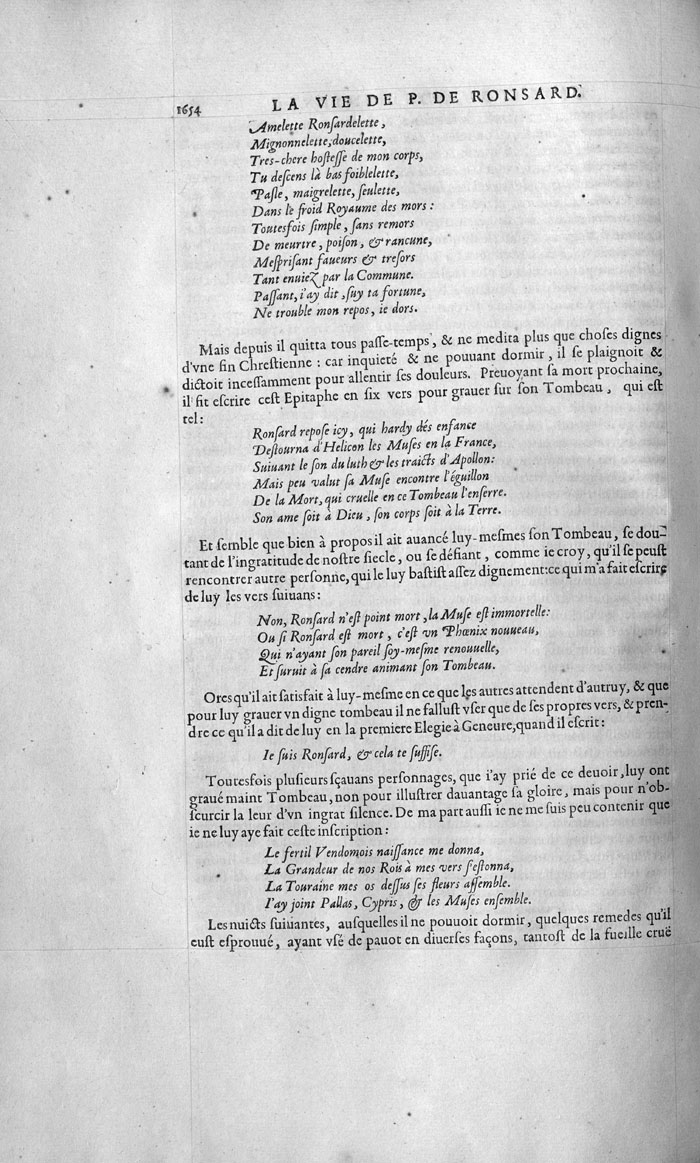 1654
LA VIE DE P. DE RONSARD.
Amelette Ronſardelette,
Mignonnelette, doucelette,
Tres-chere hoſteſſe de mon corps,
Tu deſcens là bas foiblelette,
Paſle, maigrelette, ſeulette,
Dans le froid Royaume des mors :
Toutesfois ſimple, ſans remors
De meurtre, poiſon, & rancune,
Meſpriſant faueurs & treſors
Tant enuiez par la Commune.
Paſſant, i'ay dit, ſuy ta fortune,
Ne trouble mon repos, ie dors.
Mais depuis il quitta tous paſſe-temps, & ne medita plus que choſes dignes
d'vne fin Chreſtienne : car inquieté & ne pouuant dormir, il ſe plaignoit &
dictoit inceſſamment pour allentir ſes douleurs. Preuoyant ſa mort prochaine,
il fit eſcrire ceſt Epitaphe en ſix vers pour grauer ſur ſon Tombeau, qui eſt
tel :
Ronſard repoſe icy, qui hardy dés enfance
Deſtourna d'Helicon les Muſes en la France,
Suiuant le ſon du luth & les traicts d'Apollon:
Mais peu valut ſa Muſe encontre l'éguillon
De la Mort, qui cruelle en ce Tombeau l'enſerre.
Son ame ſoit à Dieu, ſon corps ſoit à la Terre.
Et ſemble que bien à propos il ait auancé luy-meſmes ſon Tombeau, ſe dou-
tant de l'ingratitude de noſtre ſiecle, ou ſe défiant, comme ie croy, qu'il ſe peuſt
rencontrer autre perſonne, qui le luy baſtiſt aſſez dignement: ce qui m'a fait eſcrire
de luy les vers ſuiuans :
Non, Ronſard n'eſt point mort, la Muſe eſt immortelle:
Ou ſi Ronſard eſt mort, c'eſt vn Phœnix nouueau,
Qui n'ayant ſon pareil ſoy-meſme renouuelle,
Et ſuruit à ſa cendre animant ſon Tombeau.
Ores qu'il ait ſatisfait à luy-meſme en ce que les autres attendent d'autruy, & que
pour luy grauer vn digne tombeau il ne falluſt vſer que de ſes propres vers, & pren-
dre ce qu'il a dit de luy en la premiere Elegie à Geneure, quand il eſcrit :
Ie ſuis Ronſard, & cela te ſuffiſe.
Toutesfois pluſieurs ſçauans perſonnages, que i'ay prié de ce deuoir, luy ont
graué maint Tombeau, non pour illuſtrer dauantage ſa gloire, mais pour n'ob-
ſcurcir la leur d'vn ingrat ſilence. De ma part auſſi ie ne me ſuis peu contenir que
ie ne luy aye fait ceſte inſcription :
Le fertil Vendomois naiſſance me donna,
La Grandeur de nos Rois à mes vers s'eſtonna,
La Touraine mes os deſſus ſes fleurs aſſemble.
I'ay joint Pallas, Cypris, & les Muſes enſemble.
Les nuicts ſuiuantes, auſquelles il ne pouuoit dormir, quelques remedes qu'il
euſt eſprouué, ayant vſé de pauot en diuerſes façons, tantoſt de la fueille cruë